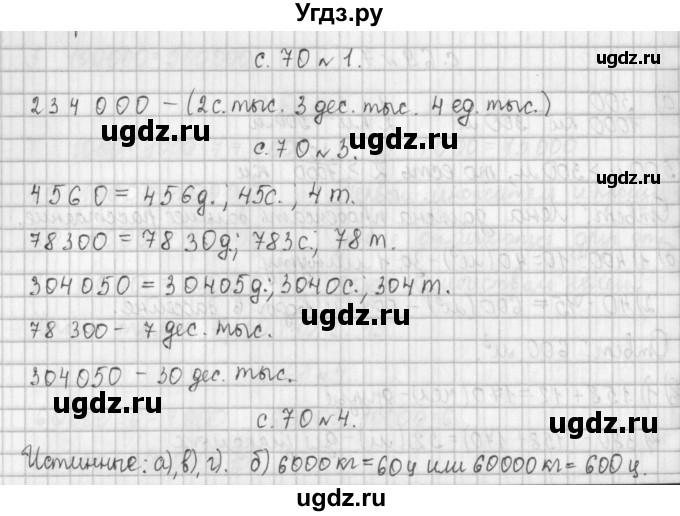 Угдз.ру
с. 70 № 1.
234 000 – (2 с. тыс. 3 дес. тыс. 4 ед. тыс.)
с. 70 № 3.
4560 = 456д.; 45с.; 4 т.
78300 = 78 30д; 783с; 78 т.
304050 = 30405д.; 3040с.; 304т.
78 300 – 7 дес. тыс.
304050 – 30 дес. тыс.
с. 70 № 4.
Истинные: а), в), г). б) 6000 кг = 60 ц или 60000 кг = 600 ц.
ugdz.ru
ugdz.ru
ugdz.ru
ugdz.ru
ugdz.ru
ugdz.ru
ugdz.ru
ugdz.ru
ugdz.ru
ugdz.ru